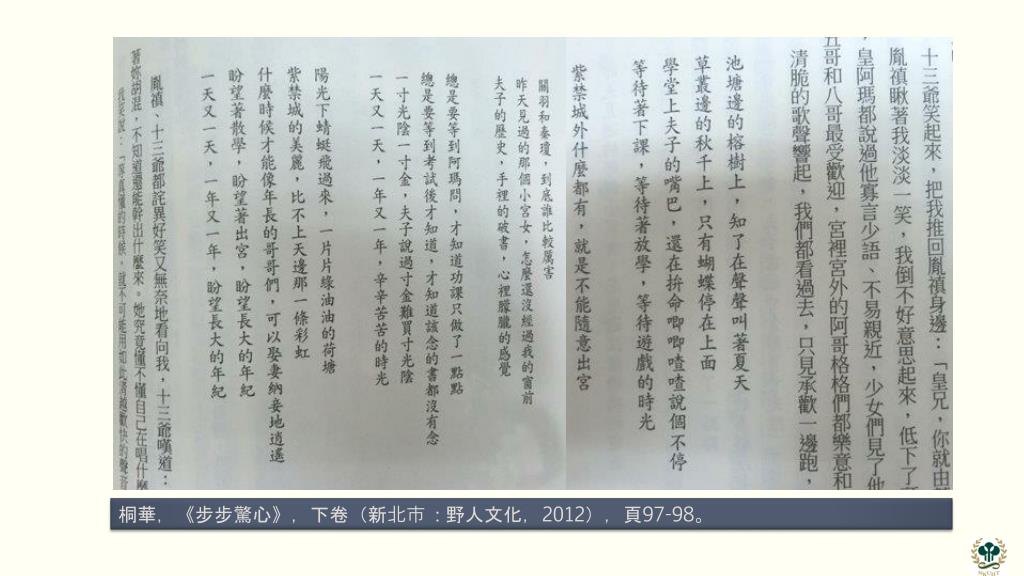 十三爺笑起來，把我推回胤禛身邊：「皇兄，你就由
胤禛瞅著我淡淡一笑，我倒不好意思起來，低下了
，皇阿瑪都說過他寡言少語、不易親近，少女們見了他
五哥和八哥最受歡迎，宮裡宮外的阿哥格格們都樂意和
清脆的歌聲響起，我們都看過去，只見承歡一邊跑，
池塘邊的榕樹上，知了在聲聲叫著夏天
草叢邊的秋千上，只有蝴蝶停在上面
學堂上夫子的嘴巴，還在拚命唧唧喳喳說個不停
等待著下課，等待著放學，等待遊戲的時光
紫禁城外什麼都有，就是不能隨意出宮
關羽和秦瓊，到底誰比較厲害
昨天見過的那個小宮女，怎麼還沒經過我的窗前
夫子的歷史，手裡的破書，心裡朦朧的感覺
總是要等到阿瑪問，才知道功課只做了一點點
總是要等到考試後才知道，才知道該念的書都沒有念
一寸光陰一寸金，夫子說過寸金難買寸光陰
一天又一天，一年又一年，辛辛苦苦的時光
陽光下蜻蜓飛過來，一片片綠油油的荷塘
紫禁城的美麗，比不上天邊那一條彩虹
什麼時候才能像年長的哥哥們，可以娶妻納妾地逍遙
盼望著散學，盼望著出宮，盼望長大的年紀
一天又一天，一年又一年，盼望長大的年紀
胤禛、十三爺都詫異好笑又無奈地看向我，十三爺嘆道：
著妳胡混，不知道還能幹出什麼來。她究竟懂不懂自己在唱什麼
我笑說：「等真懂的時候，就不可能用如此清越歡快的聲音
桐華，《步步驚心》，下卷（新北市：野人文化，2012），頁97-98。